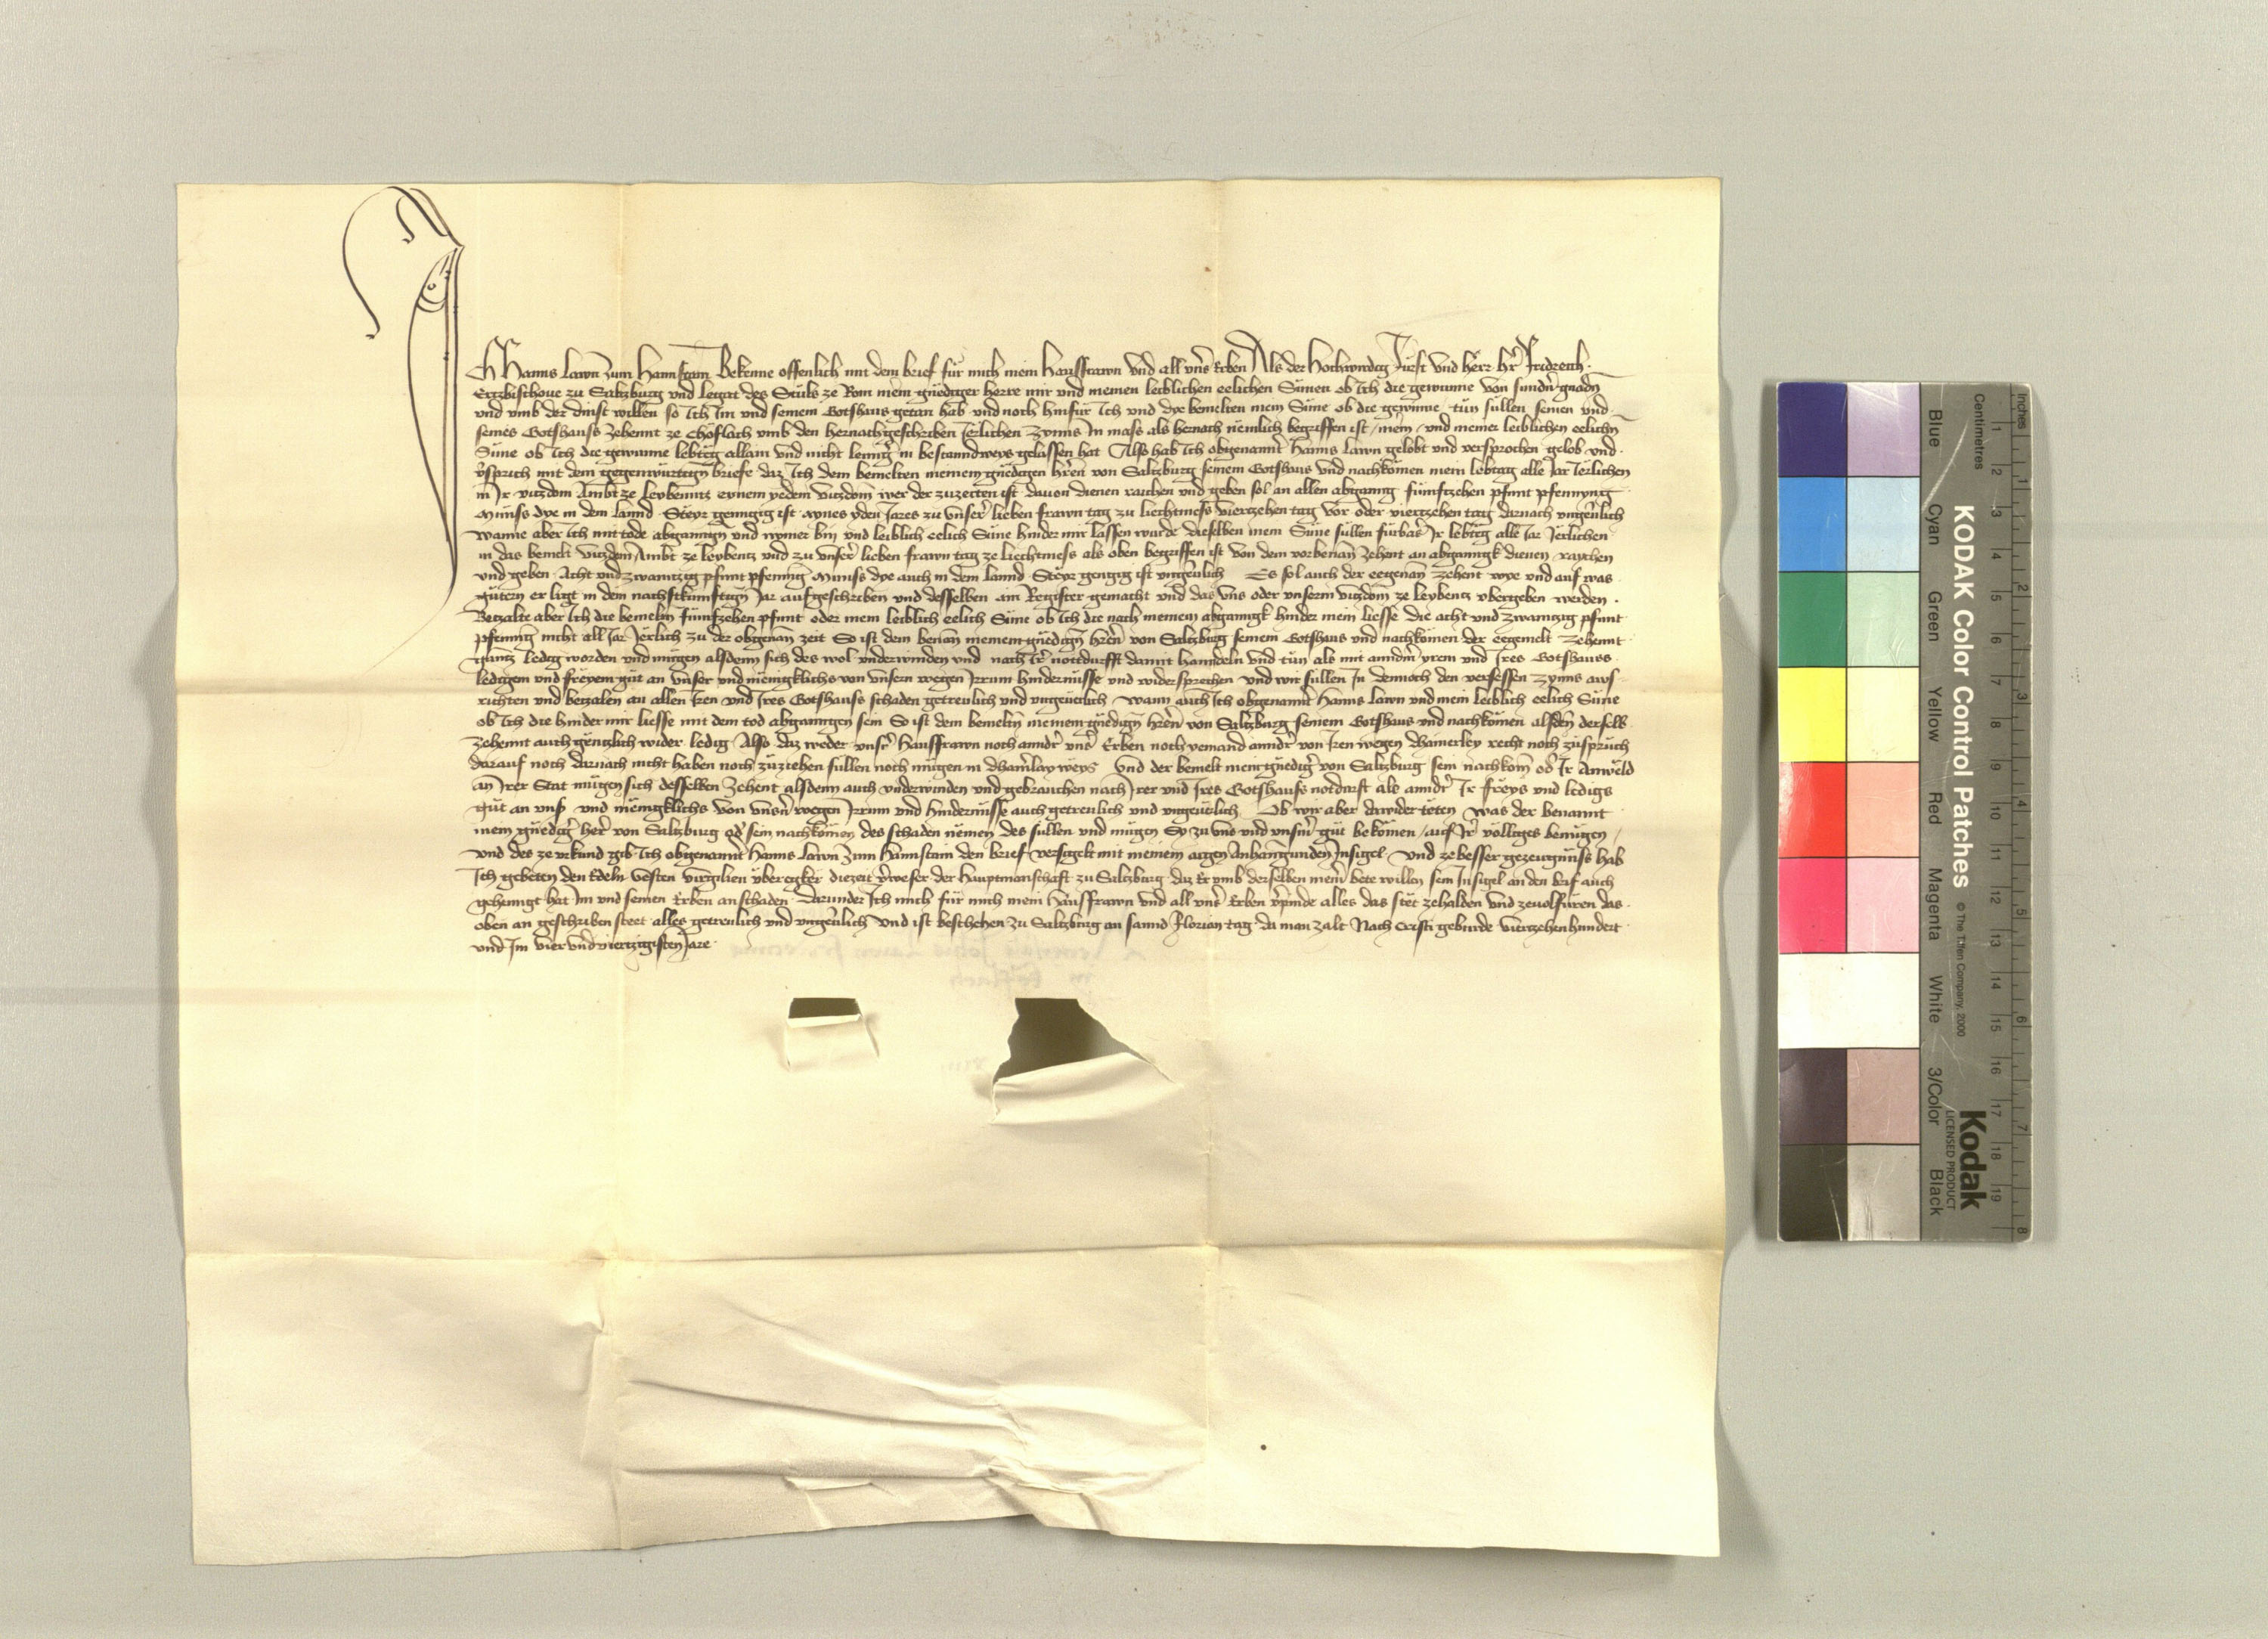 Ich Hanns Lawn zum Hannstain Bekenne offenlich mit dem brief für mich mein Hausfrawn vnd all vnser Erben Als der Hochwirdig Fürst vnd herr hr Fridreich
Ertzbischoue zu Saltzburg vnd Legat des Stuls ze Rom mein gnediger herre mir vnd meinen leiblichen eelichen Sünen ob Ich die gewunne von sundern gnaden
vnd vmb der dinst willen so Ich Im vnd seinem Gotshaus getan hab vnd noch hinfür Ich vnd dye bemelten mein Süne ob die gewunne tün süllen seinen vnd
seines Gotshauss Zehennt ze Chöflach vmb den hernachgeschriben Jerlichen Zynns In mass als hernach nemlich begriffen ist mein vnd meiner leiblichen eelichn
Süne ob Ich die gewunne lebteg allain vnd nicht lennger in bestanndweys gelassen hat Also hab Ich obgenannter Hanns Lawn gelobt vnd versprochen gelob vnd
versprich mit dem gegenwürtign briefe daz Ich dem bemelten meinem gnedigen hren von Saltzburg seinem Gotshaus vnd nachkömen mein lebtag alle Jar Jerlichen
in Ir vitzdom Ambt ze Leybenntz eynem yedem vitzdom wer der zuzeiten ist dauon dienen raichen vnd geben sol an allen abganng fünftzehen pfunt pfennyng
Münss dye in dem lannd Steyr genngig ist aynes yden Jares zu vnser lieben frawn tag zu liechtmess viertzehen tag vor oder viertzehen tag darnach vngeuerlich
Wanne aber Ich mit tode abganngen vnd nymer bin vnd leiblich eelich Süne hinder mir lassen wurde dieselben mein Süne süllen fürbas Ir lebteg alle Jar Jerlichen
in das bemelt vitzdom Ambt ze leybentz vnd zu vnser lieben frawn tag ze liechtmess als oben begriffen ist von dem vorbenan Zehent an abganngk dienen raichen
vnd geben Acht vnd zwaintzig pfunt pfenning Münss dye auch in dem lannd Steyr gengig ist vngeuerlich Es sol auch der eegenan zehent wye vnd auf was
gütern er ligt in dem nachstkunftign Jar aufgeschriben vnd desselben ain Register gemacht vnd das vns oder vnserm vitzdom ze leybentz vbergeben werden
Betzalte aber Ich die bemeltn fünfzehen pfunt oder mein leiblich eelich Süne ob Ich die nach meinem abganngk hinder mein liesse die acht vnd zwaintzig pfunt
pfenning nicht all Jar Jerlich zu der obgenan zeit So ist dem benan meinem gnedign hren von Saltzburg seinem Gotshaus vnd nachkömen der eegemelt Zehennt
gantz ledig worden vnd mügen alsdenn sich des wol vnderwinden vnd nach Ir nottdurfft damit hanndeln vnd tün als mit anndern yrem vnd Ires Gotshauss
ledigem vnd freyem güt an vnser vnd meniklichs von vnsern wegen Irrum hindernüsse vnd widersprechen vnd wir süllen In dennoch den versessen Zynns aus
richten vnd betzalen an allen Iren vnd Ires Gotshauss schaden getreulich vnd vngeuerlich Wann auch Ich obgenannter Hanns Lawn vnd mein leiblich eelich Süne
ob Ich die hinder mir liesse mit dem tod abganngen sein So ist dem bemeltn meinem gnedign hren von Saltzburg seinem Gotshaus vnd nachkömen alsden derselb
Zehennt auch gentzlich wider ledig Also daz weder vnser hausfrawn noch annder vnser Erben noch yemand annder von Iren wegen dhainerley recht noch züspruch
darauf noch darnach nicht haben noch zuziehen süllen noch mügen in dhainlay weys Vnd der bemelt mein gnediger von Saltzburg sein nachkom oder Ir Anweld
an Irer Stat mügen sich desselben Zehent alsdenn auch vnderwinden vnd gebrauchen nach Irer vnd Ires Gotshauss notdurft als annder Ir freys vnd ledigs
güt an vnser vnd meniklichs von vnsern wegen Irrum vnd hindernüsse auch getreulich vnd vngeuerlich Ob wir aber dawider teten was der benannt
mein gnediger her von Saltzburg oder sein nachkömen des schaden nemen des süllen vnd mügen Sy zu vns vnd vnserm güt bekömen auf Ir völligs benügen
vnd des ze vrkund gib Ich obgenannter Hanns Lawn zum Hannstain den brief versigelt mit meinem aigen Anhanngunden Insigel vnd ze besser gezeugnüss hab
Ich gebeten den Edeln Vesten Virgilien Vberegker diezeit verweser der Hauptmanschaft zu Saltzburg daz Er vmb derselben meiner bete willen sein Insigel an den brif auch
gehenngt hat Im vnd seinen Erben an schaden Darunder Ich mich für mich mein Hausfrawn vnd all vnser Erben verpinde alles das stet zehalden vnd zeuolfüren das
oben an geschriben steet alles getreulich vnd vngeuerlich Vnd ist beschehen zu Saltzburg an sannd Florian tag da man zalt Nach Cristi geburde Viertzehenhundert
vnd Im vier vnd viertzigisten Jare
KODAK Color Control Patches © The Tiffen Company, 2000
Kodak
LICENSED PRODUCT
Blue Cyan Green Yellow Red Magenta White 3/Color Black
Inches 1 2 3 4 5 6 7 8
Centimetres 1 2 3 4 5 6 7 8 9 10 11 12 13 14 15 16 17 18 19